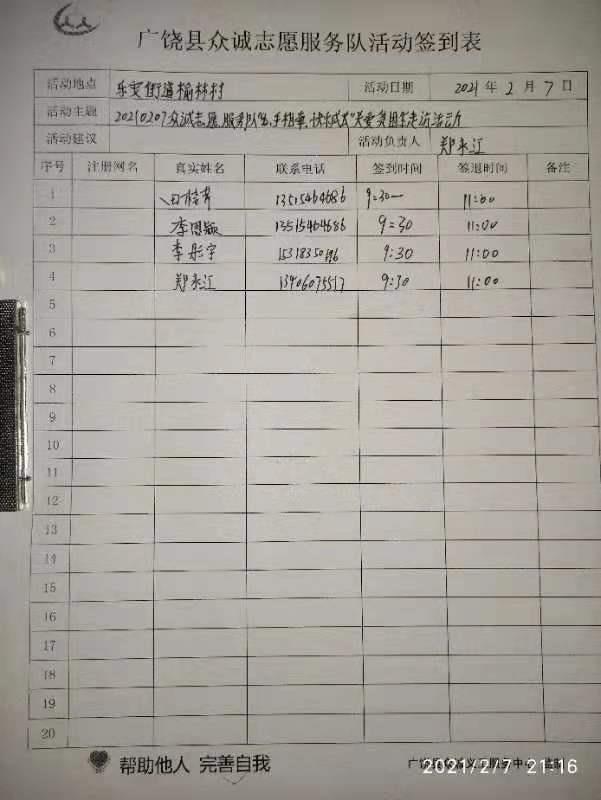 广饶县众诚志愿服务队活动签到表
活动地点 乐安街道榆林村 活动日期 2021年2月7日
活动主题 20210207众诚志愿服务队"心手相牵，快乐成长"关爱贫困学生走访活动
活动建议 活动负责人 郑永江
序号 注册网名 真实姓名 联系电话 签到时间 签退时间 备注
1 13515464686 9:30 11:00
2 李恩颖 13515464686 9:30 11:00
3 李彤宇 9:30 11:00
4 郑永江 13406075517 9:30 11:00
5
6
7
8
9
10
11
12
13
14
15
16
17
18
19
20
帮助他人 完善自我
2021/2/7 21:16